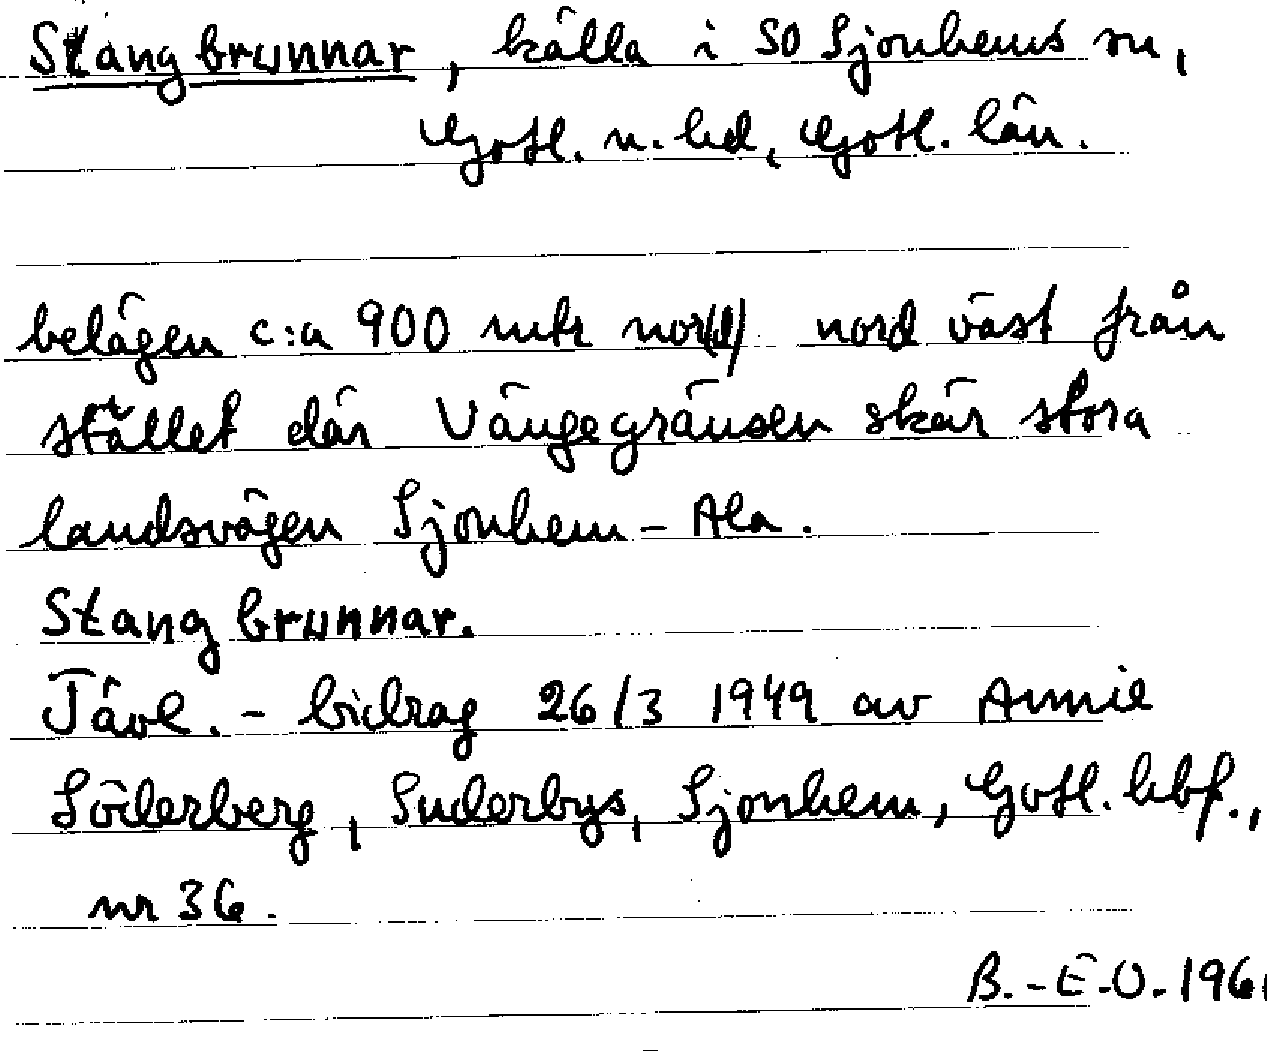 Stangbrunnar, källa i SO Sjonhems sn,
Gotl. n. hd, Gotl. län.
belägen c:a 900 mtr nor(d) nord väst från
stället där Vängegränsen skär stora
landsvägen Sjonhem – Ala.
Stangbrunnar.
Tävl. – bidrag 26/3 1949 av Annie
Söderberg, Suderbys, Sjonhem, Gotl. hbf.,
nr 36.
B.-E-O- 1961